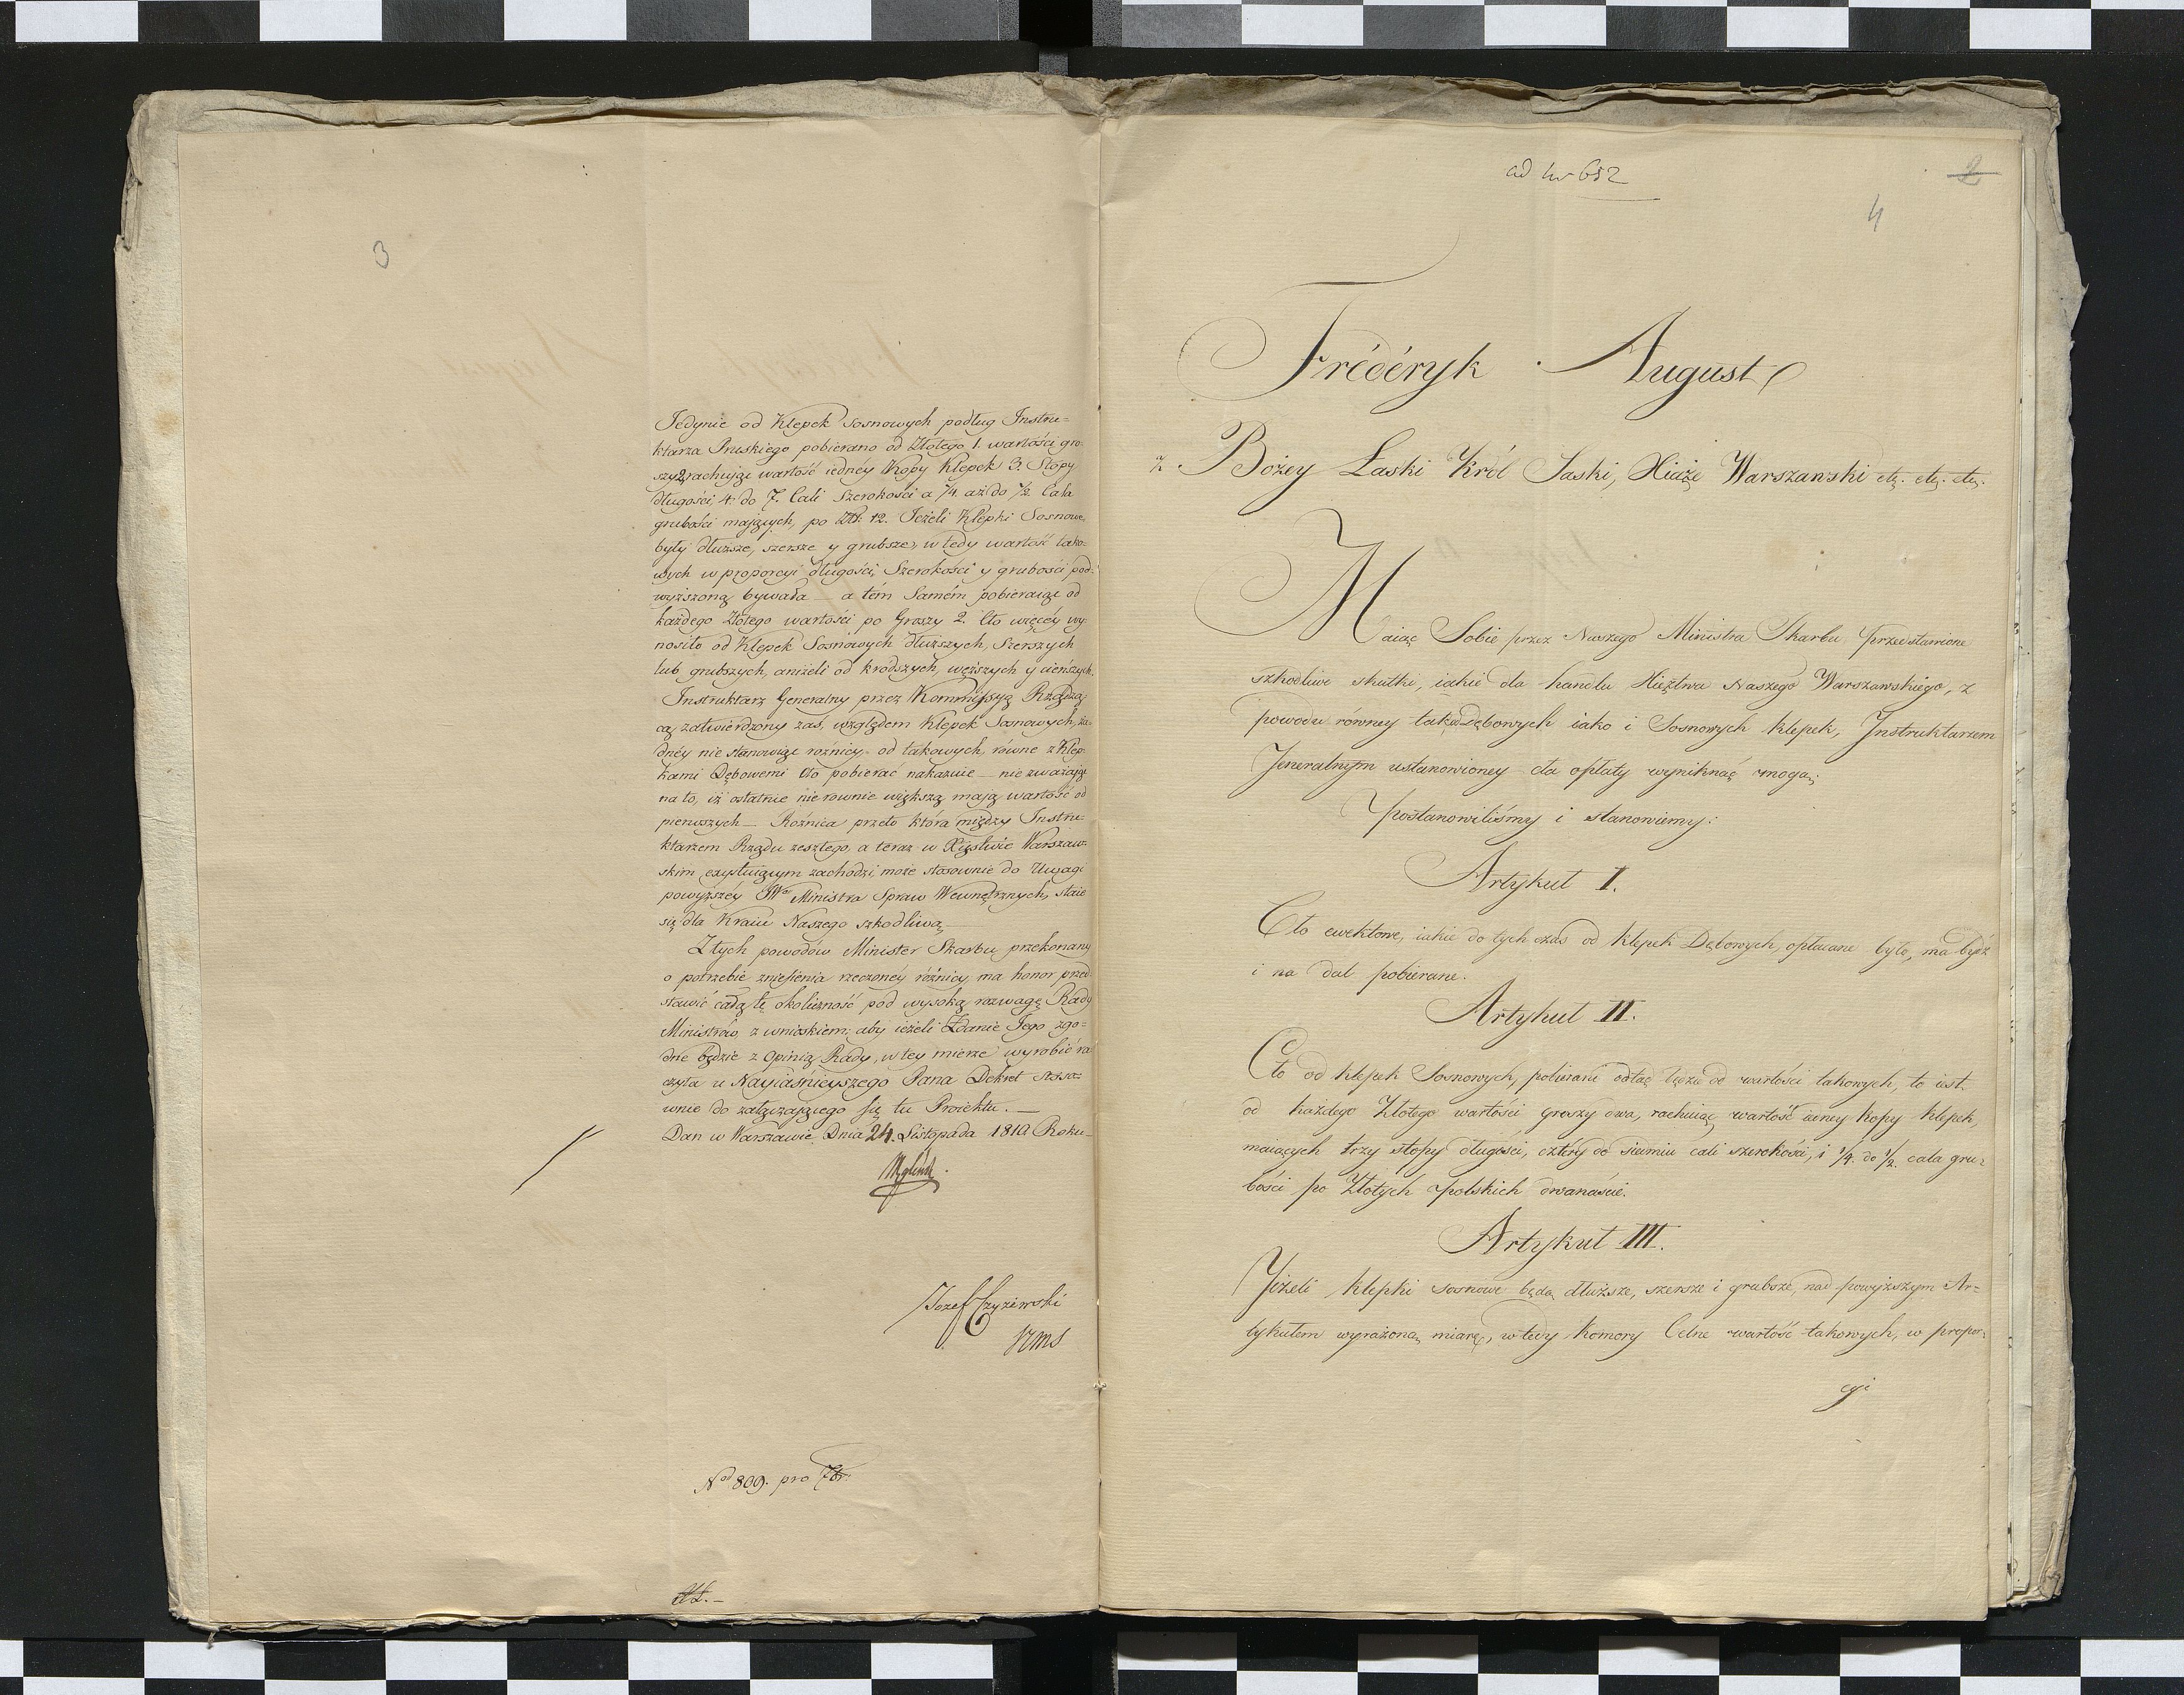 3
Jedynie od Klepek Sosnowych podług Instru=
ktarza Pruskiego pobierano od Złotego 1. wartości gro-
szy 2 rachuiąc wartość iednéy Kopy Klepek 3. Stopy
długości 4. do 7. Cali Szerokości a 1/4 aż do 1/2 Cala
grubości maiących, po Złt: 12. Jeżeli Klepki Sosnowe
były dłuższe, szersze y grubsze, w tedy wartość tako-
wych w proporcyi długości, Szerokości y grubości pod-
wyższoną bywała — a tém Samém pobieraiąc od
każdego Złotego wartości po Groszy 2. Cło więcéy wy-
nosiło od Klepek Sosnowych dłuższych, szerszych
lub grubszych, aniżeli od krodszych, węższych y cieńszych.
Instruktarz Generalny przez Kommissyą Rządzą
cą zatwierdzony zaś, względem Klepek Sosnowych, ża-
dnéy nie stanowiąc roznicy od takowych, równe z Klep-
kami Dębowemi Cło pobierać nakazuie — nie zważaiąc
na to, iż ostatnie nierownie większą maią wartość od
pierwszych — Roźnica przeto która między Instru-
ktarzem Rządu zeszłego, a teraz w Xięstwie Warszaw-
skim exystuiącym zachodzi, może stosownie do Uwagi
powyższéy JWo Ministra Spraw Wewnętrznych, staie
się dla Kraiu Naszego szkodliwą
Z tych powodów Minister Skarbu przekonany
o potrzebie zniesienia rzeczonéy różnicy, ma honor przed
stawić całą tę okoliczność pod wysoką rozwagę Rady
Ministrów, z wnioskiem; aby ieżeli Zdanie Jego zgo=
dne będzie z Opinią Rady, w tey mierze wyrobić ra
czyła u Nayiaśnieyszego Pana Dekret stoso=
wnie do załączaiącego się tu Proiektu. —
Dan w Warszawie Dnia 24. Listopada 1810 Roku —
Węgleński
Jozef Czyżewski
No 809. pro
ad Nr 652
2
4
Fréderyk August
z Bożey Łaski Król Saski, Xiąże Warszawski etc. etc. etc.
Maiąc Sobie przez Naszego Ministra Skarbu przedstawione
szkodliwe skutki, iakie dla handlu Xięztwa Naszego Warszawskiego, z
powodu równey tak Dębowych iako i Sosnowych klepek, Instruktarzem
Jeneralnym ustanowioney cła opłaty wyniknąć mogą;
Postanowiliśmy i stanowiemy:
Artykuł I.
Cło ewektowe, iakie do tych czas od Klepek Dębowych, opłacane było, ma bydź
i na dal pobierane.
Artykuł II.
Cło od klepek Sosnowych, pobierane odtąd będzie od wartości takowych, to iest
od każdego Złotego wartości groszy dwa, rachuiąc wartość iedney Kopy klepek,
maiących trzy stopy długości, cztéry do siedmiu cali szerokości, i 1/4. do 1/2. cala gru=
bości po Złotych Polskich dwanaście.
Artykuł III.
Jeżeli klepki sosnowe będą dłuższe, szersze i grubsze, nad powyższym Ar=
tykułem wyrażoną miarę, w tedy Komory Celne wartość takowych, w propor=
cyi